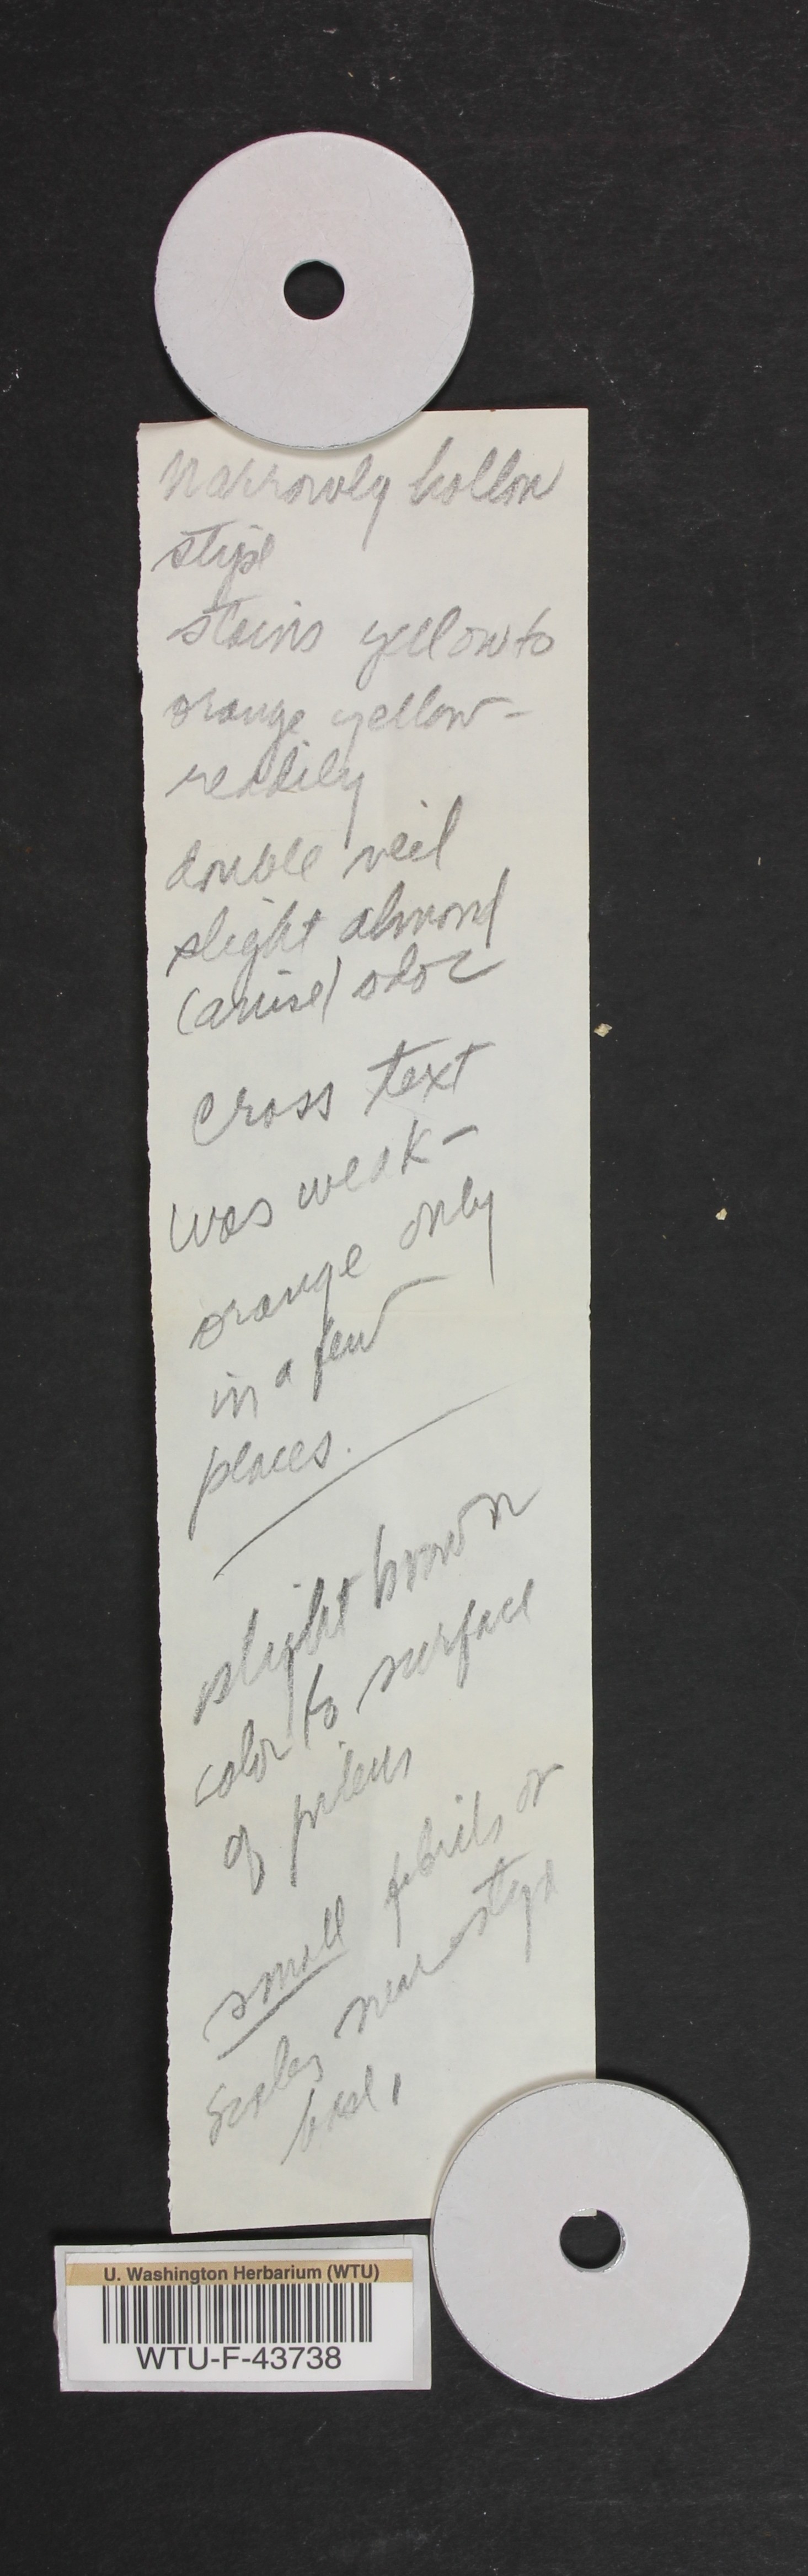 Narrowly hollow
stipe
stains yellow to
orange yellow -
readily
double veil
slight almond
(anise) odor
cross text
was weak -
orange only
in a few
places.
slight brown
color to surface
of pileus
small fibrils or
scales near stipe
base,
U. Washington Herbarium (WTU)
WTU-F-43738